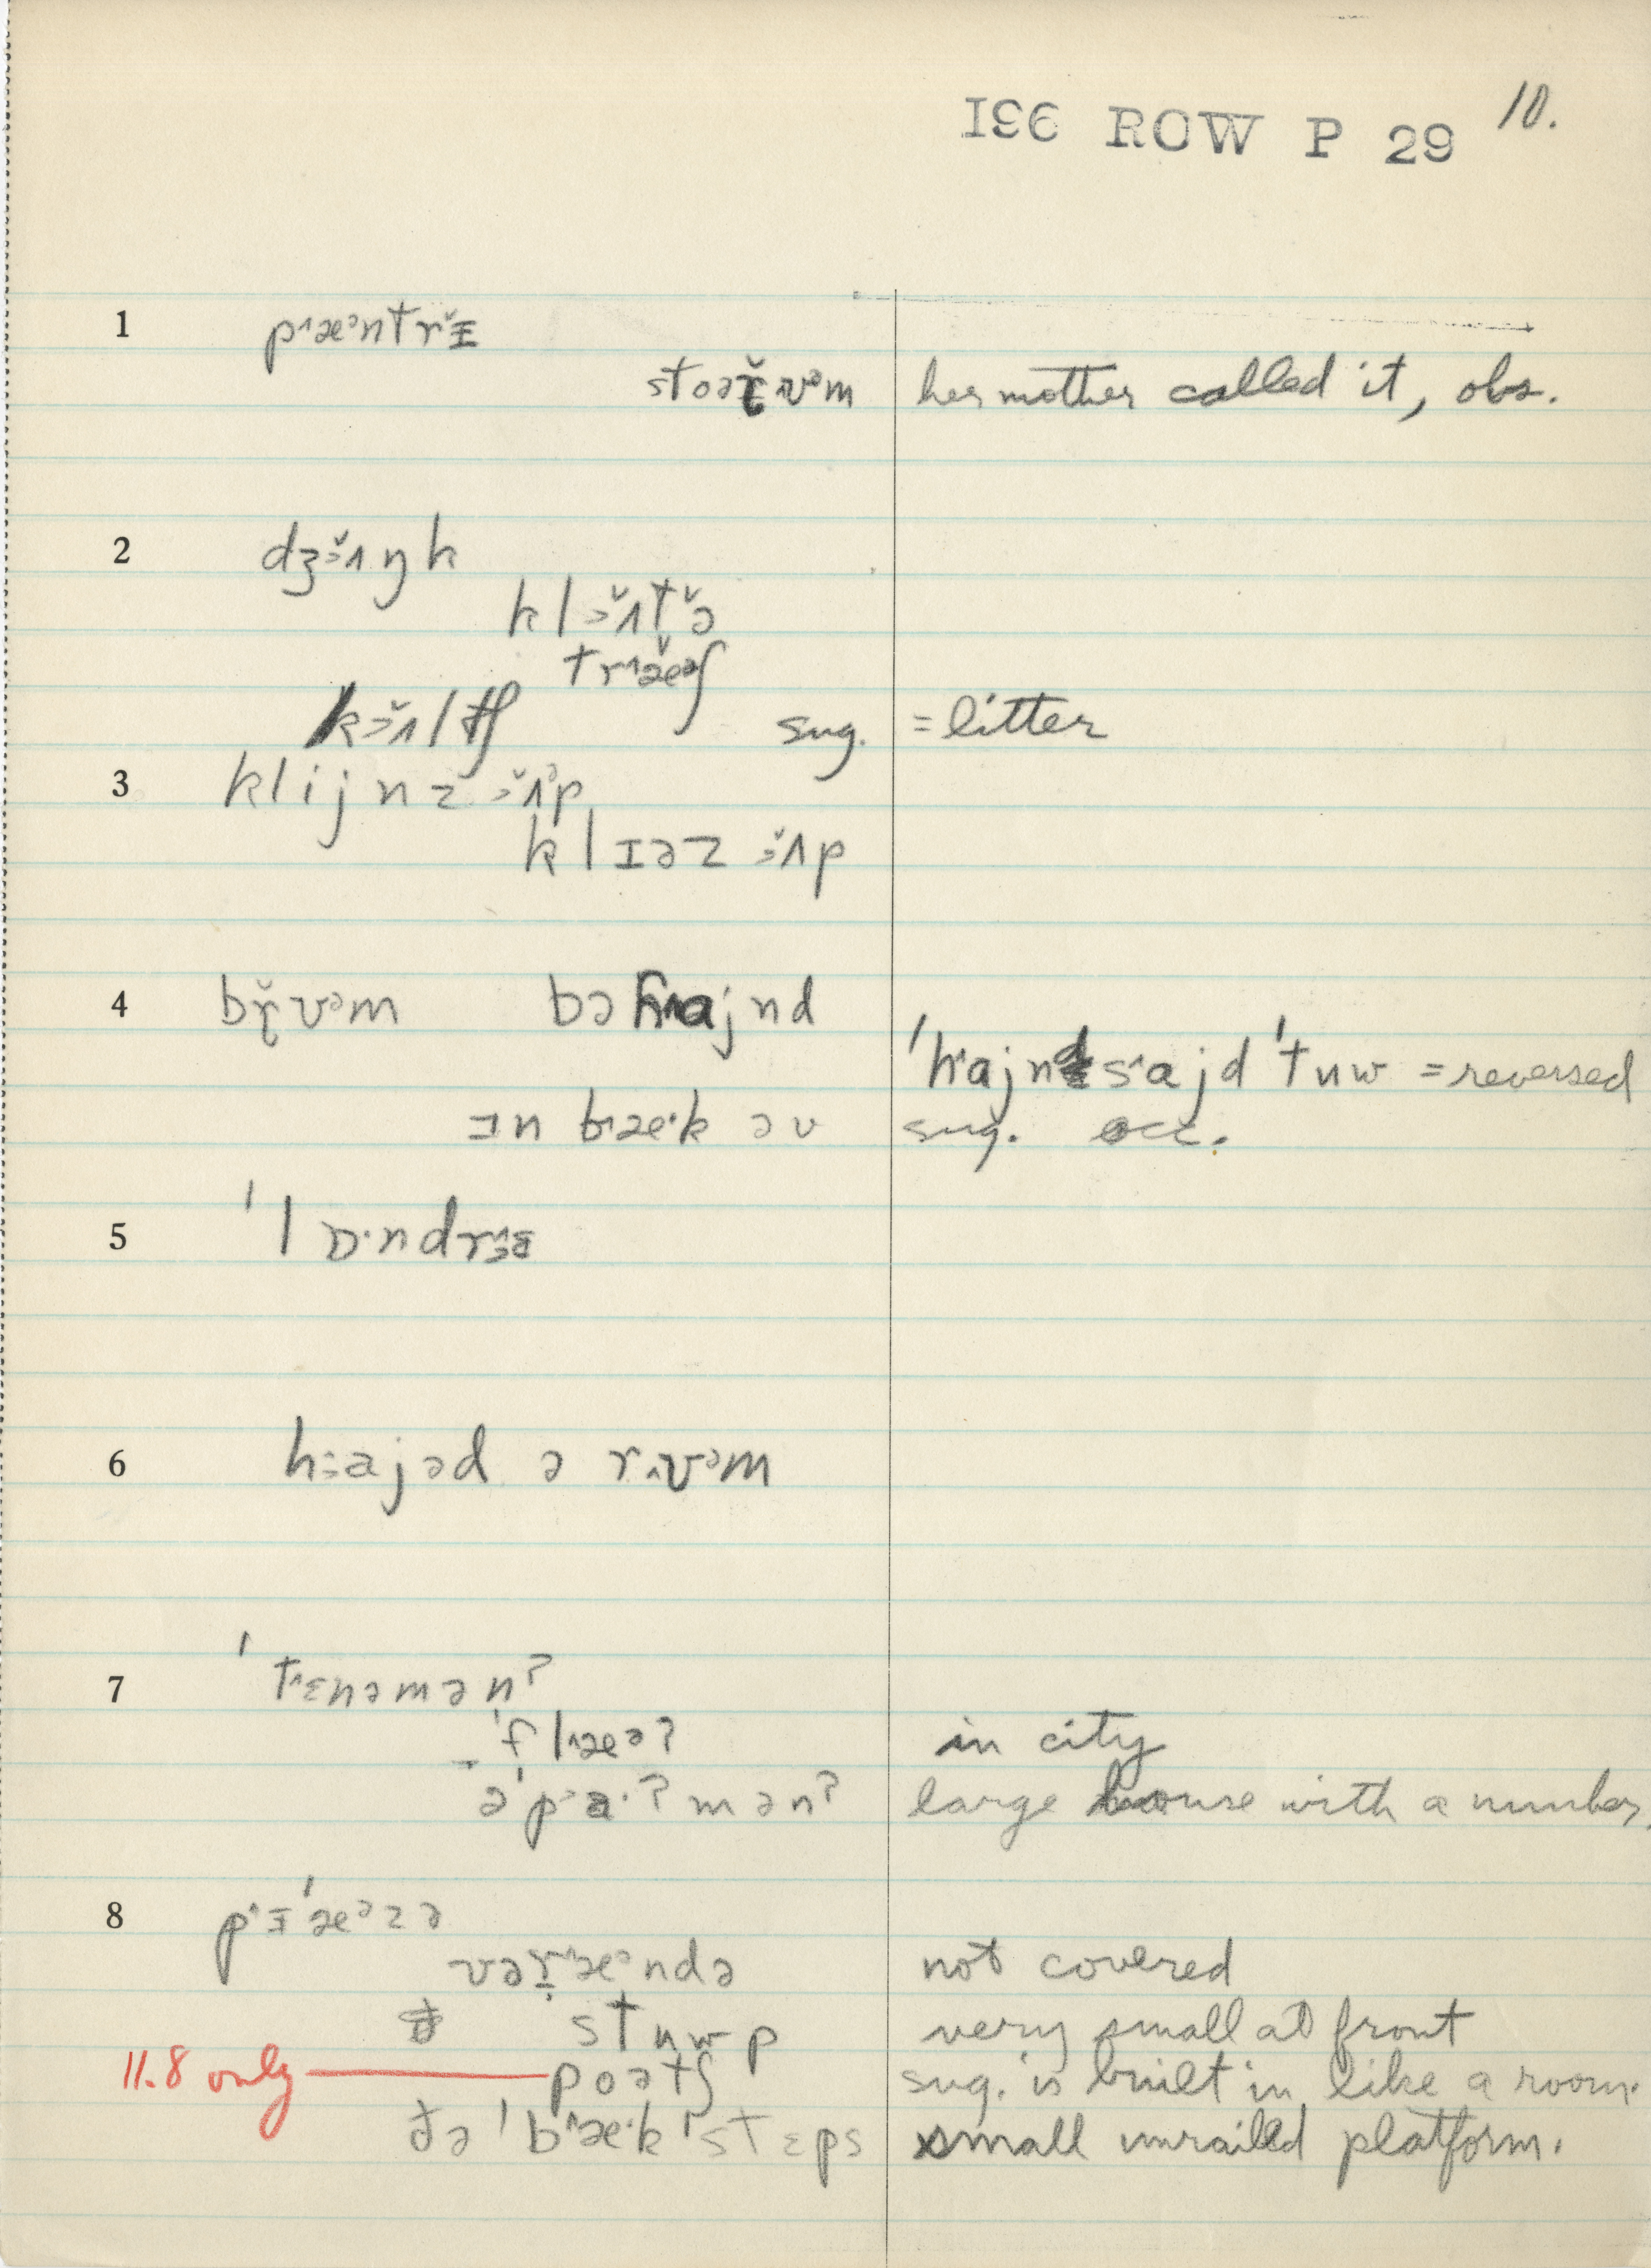 196 ROW P 29 10.
1 p˄æᵊntrɪ̌
stoəɽ̌ʊᵊm her mother called it, obs.
2 dʒɜ̌˄ŋk
klɜ̌˄t̬ə̌
tr˄æ̌əʃ
kɜ̌˄ltʃ sug. = litter
3 klijnz ɜ̌˄ᵊp
klɪəz ɜ̌˄p
4 bɽ̌ʊᵊm bəh˄ajnd
'h˄ajnd s˄ajd 'tuw = reversed
ɪn b˄æ·k əv sug. occ.
5 'lɒ·ndrɪ
6 h˄ajəd ə r˄ʊᵊm
7 't˄ɛnəmənʔ
'fl˄æəʔ in city
ə'p˃a·ʔmənʔ large house with a number.
8 p˄ɪ'æᵊzə
vəɽ˄æᵊndə not covered
stuwp very small at front
11.8 only poətʃ sug. is built in like a room.
ðə 'b˄æ·k 'stɛps small unrailed platform.